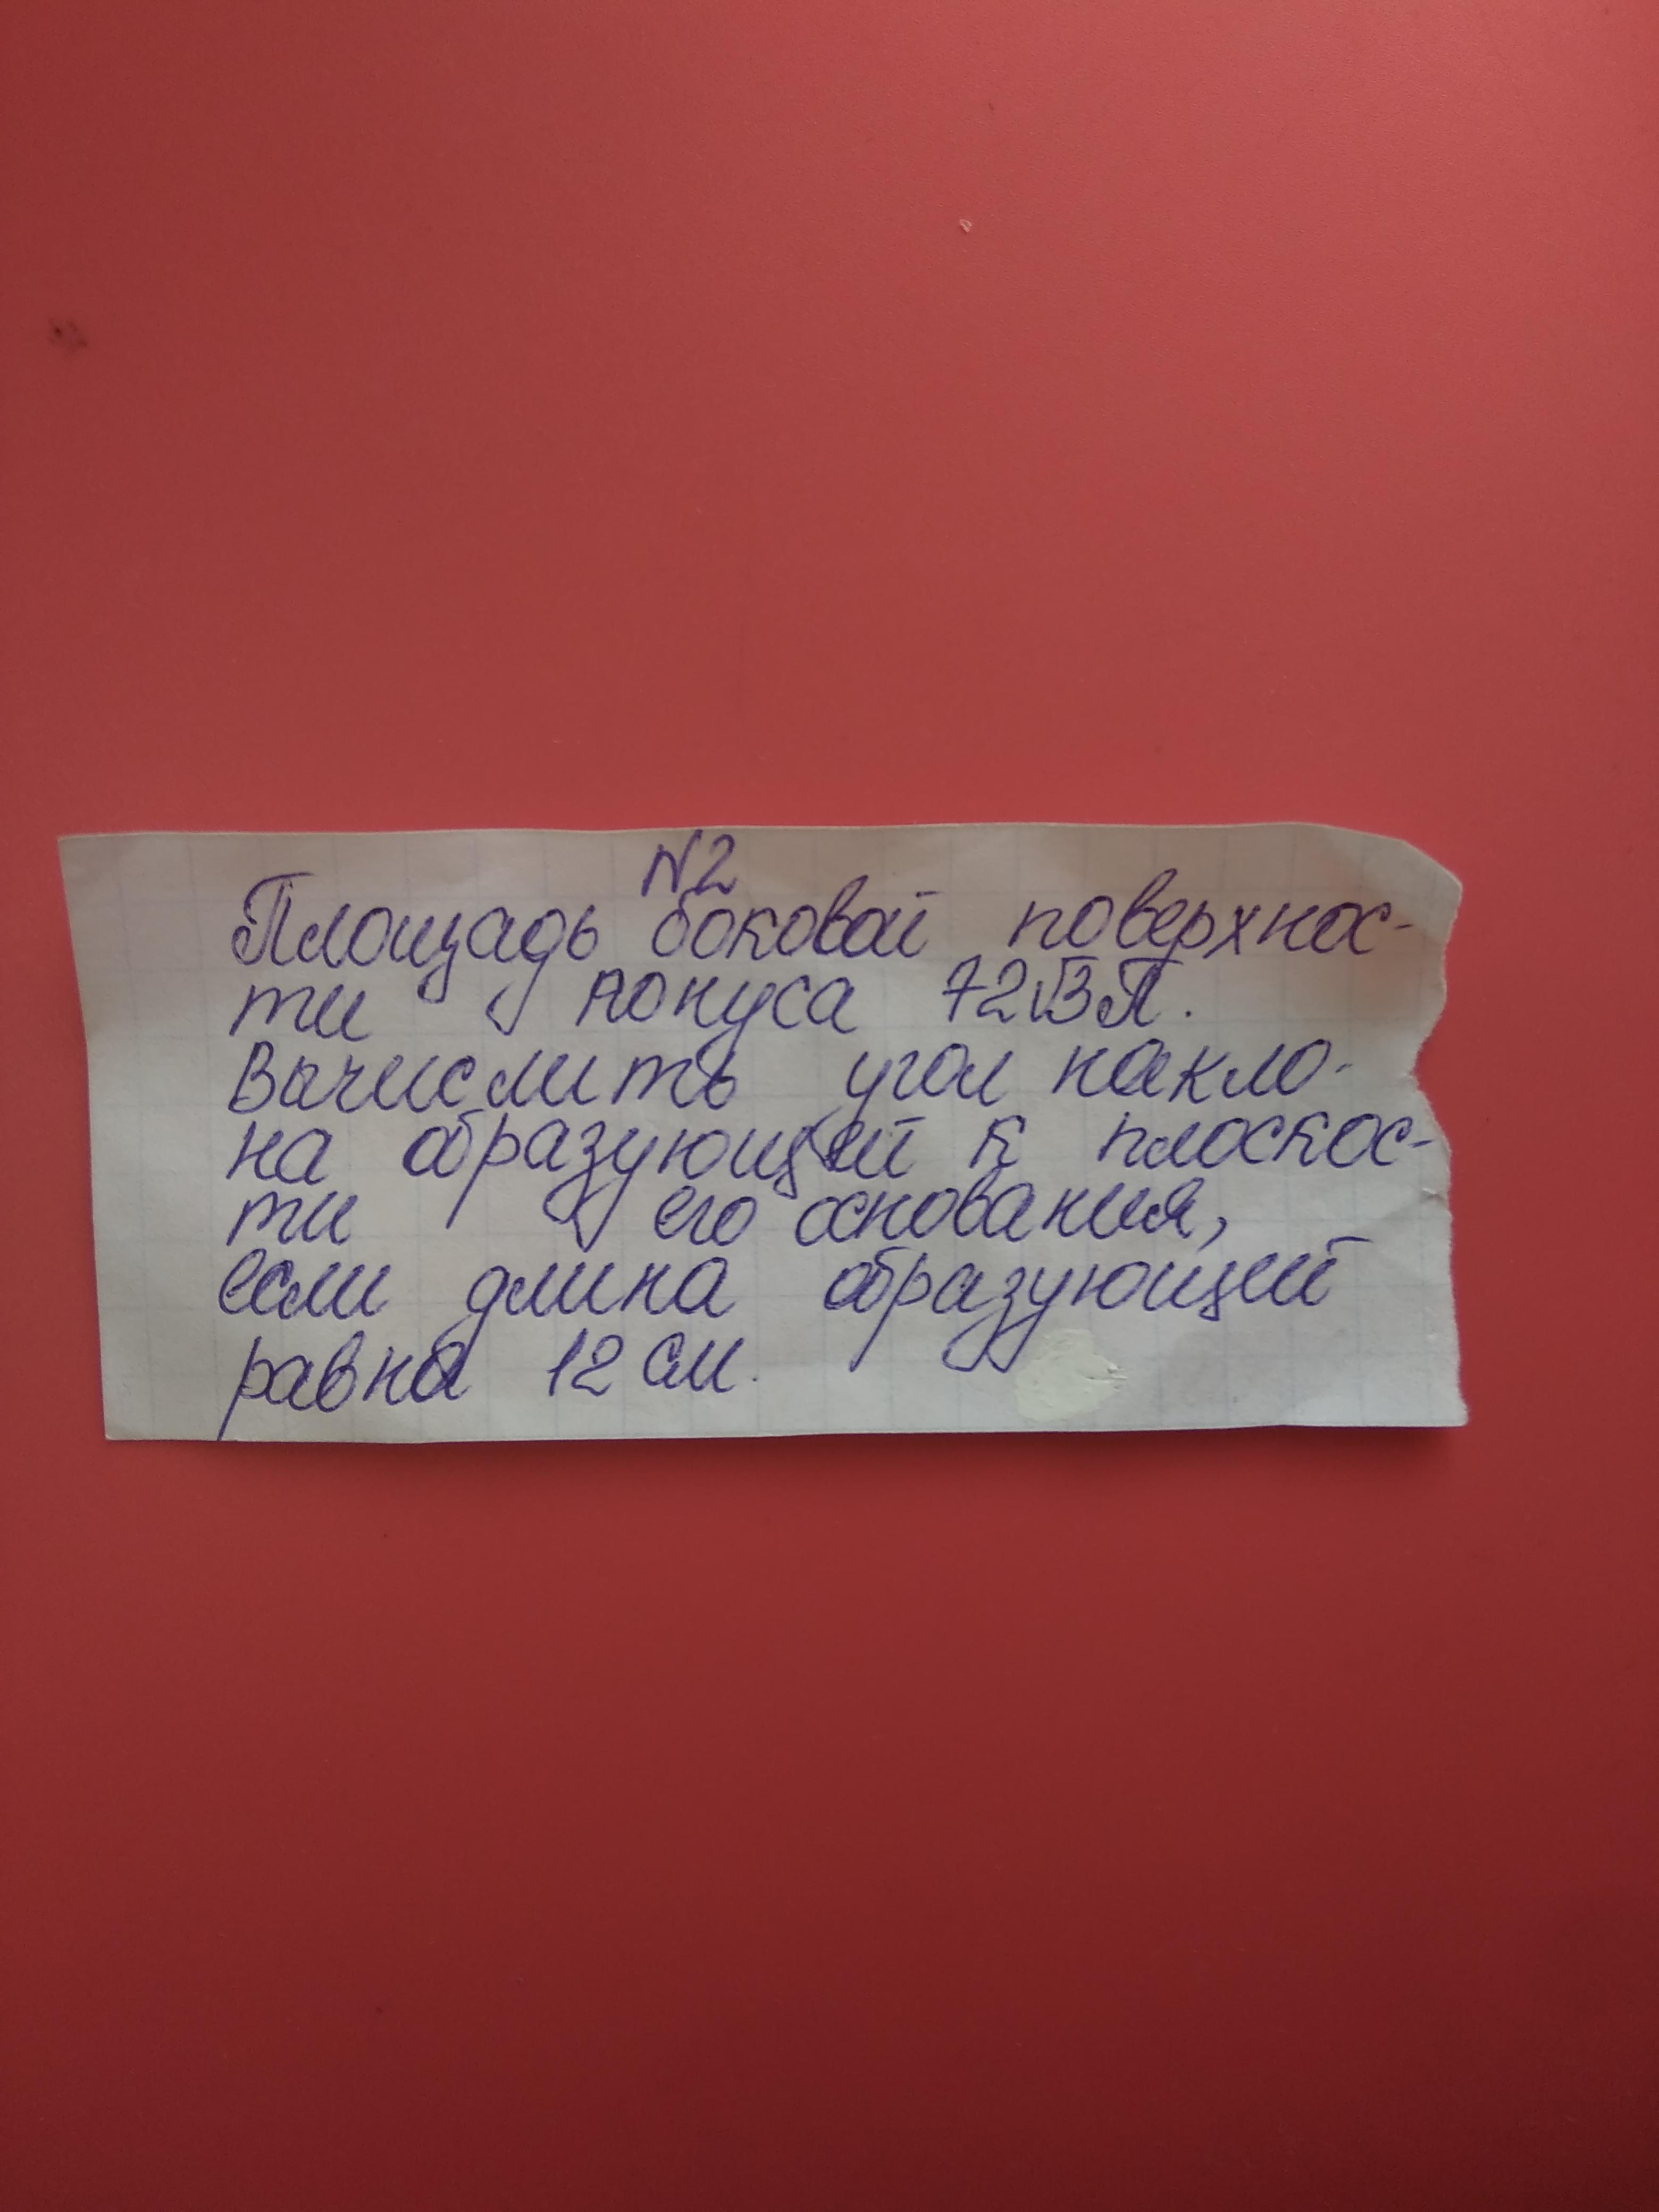 N2
Площадь боковой поверхнос-
ти конуса 72√3π.
Вычислить угол накло-
на образующей к плоскос-
ти его основания,
если длина образующей
равна 12 см.